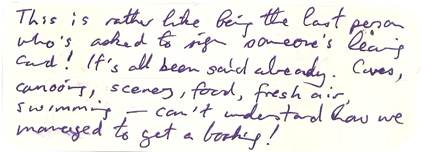 This is rather like being the last person
who's asked to sign someone's leaving
card! It's all been said already. Caves,
canoeing, scenery, food, fresh air,
swimming — can't understand how we
managed to get a booking!